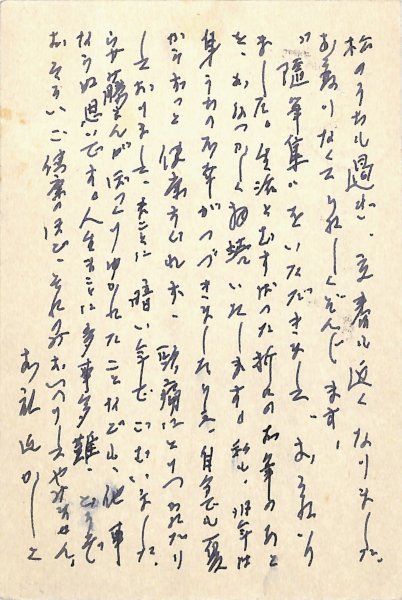 松のうちも過ぎ、立春も近くなりました。
お変りなくてうれしくぞんじます。
"随筆集"をいただきまして、ありがたう
ました。生活とむすばつた折々のお筆のあと
を、おなつかしく拝読いたします。私も、昨年は
身うちの不幸がつづきましたりして、自分でも夏
からずつと健康すぐれず、頭痛にとりつかれたり
しておりまして、まことに暗い年でございました。
安藤さんがぽつくりゆかれたことなども、他事
ならぬ思いです。人生まことに多事多難、どうぞ
おそろいご健康のほど、それのみおいのりしてやみません。
お礼迄 かしこ